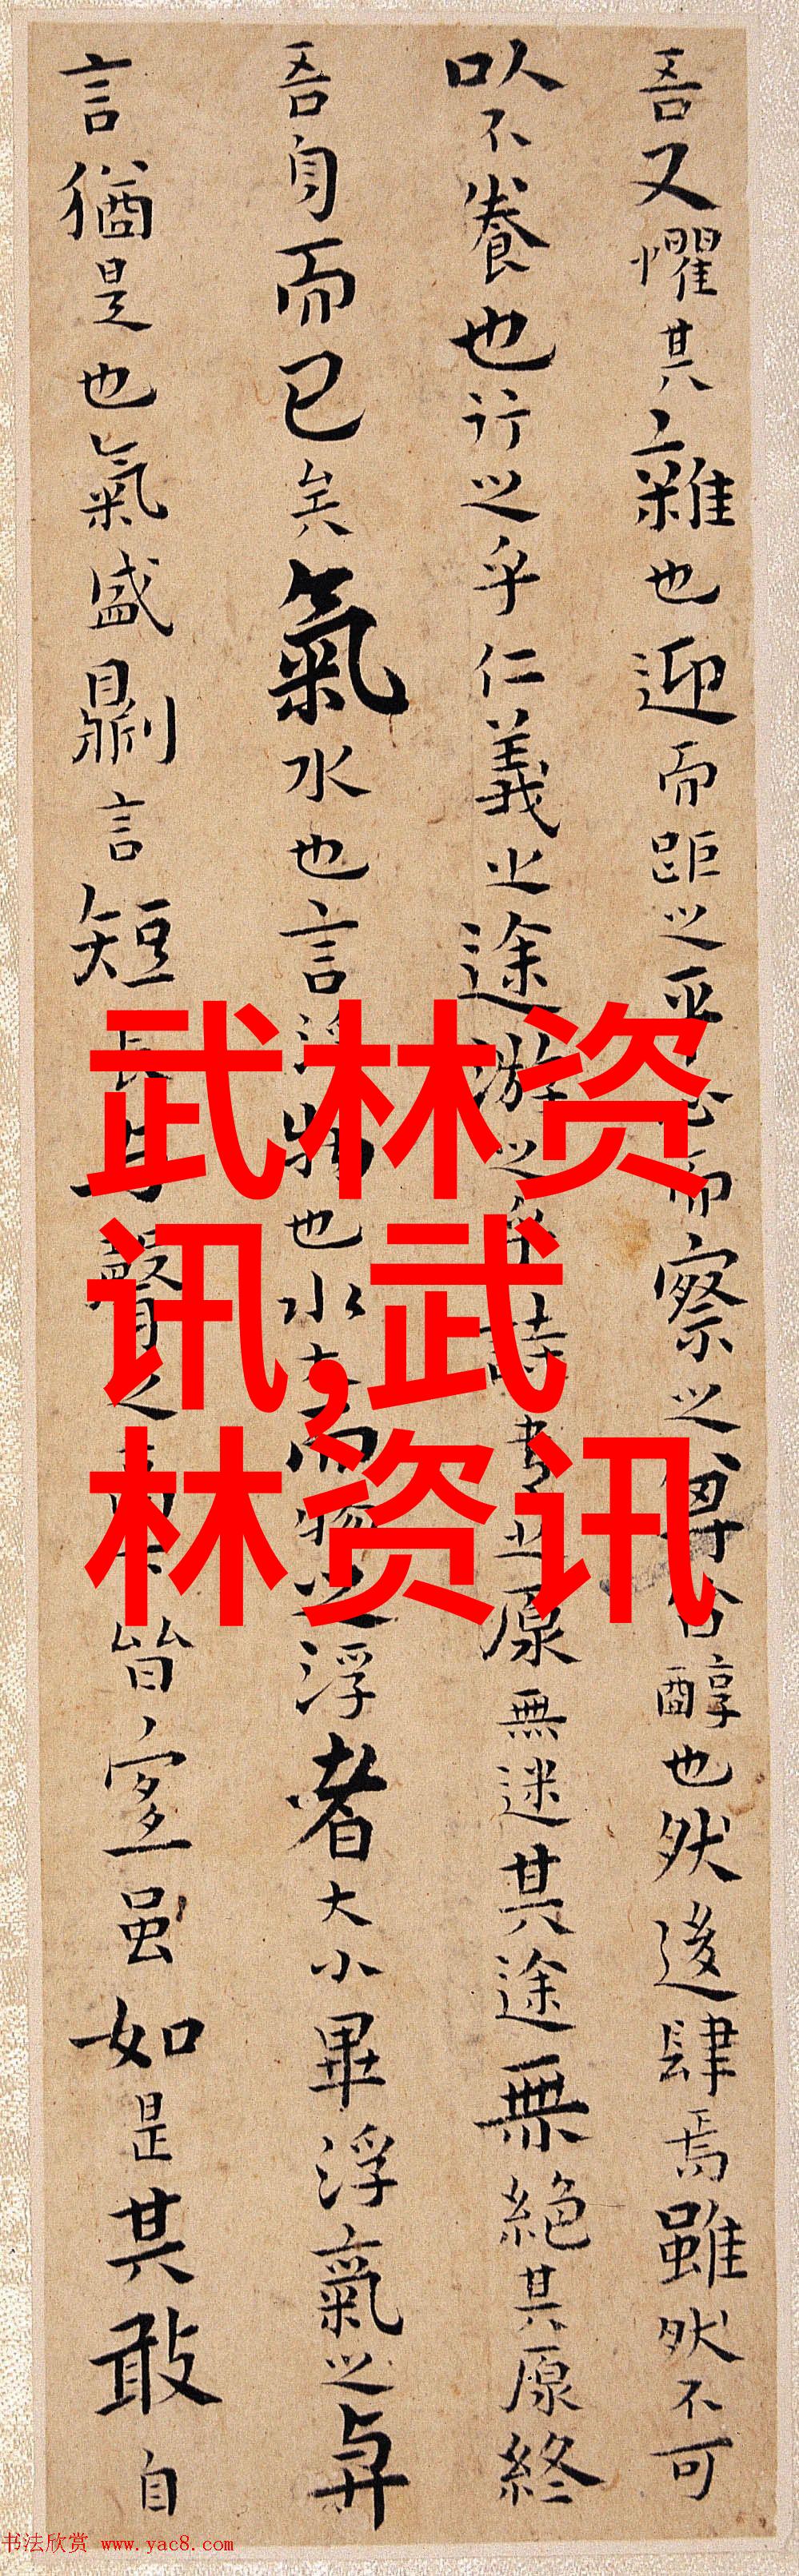 吾又懼其雜也迎而距之平心而察之醇也然後肆焉雖然不可
以不養也行之乎仁義之途游之乎詩書之原無迷其途無絕其原終
吾身而已矣氣水也言浮物也水大而物之浮者大小畢浮氣之與
言猶是也氣盛則言短長與聲之高下皆宜雖如是其敢自
武林资
讯,武
林资讯
书法欣赏 www.yac8.com